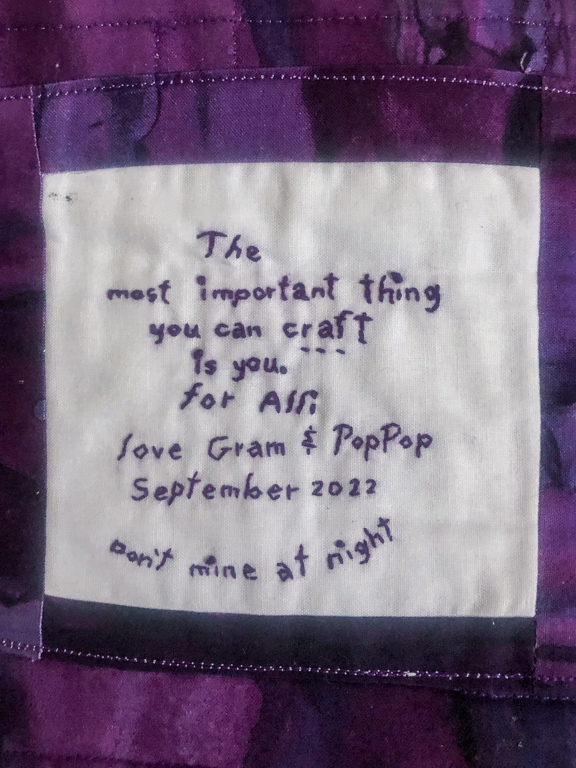 The
most important thing
you can craft
is you.
for Alli
love Gram & PopPop
September 2022
Don't mine at night